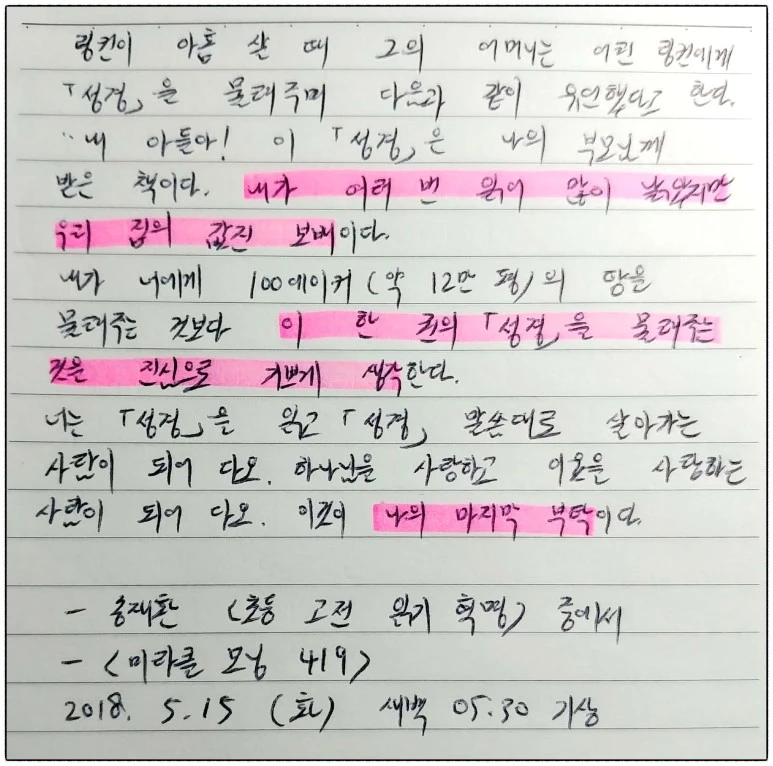 링컨이 아홉 살 때 그의 어머니는 어린 링컨에게
「성경」을 물려주며 다음과 같이 유언했다고 한다.
"내 아들아! 이 「성경」은 나의 부모님께
받은 책이다. 내가 여러 번 읽어 많이 낡았지만
우리 집의 값진 보배이다.
내가 너에게 100에이커 (약 12만 평)의 땅을
물려주는 것보다 이 한 권의 「성경」을 물려주는
것을 진심으로 기쁘게 생각한다.
너는 「성경」을 읽고 「성경」 말씀대로 살아가는
사람이 되어 다오. 하나님을 사랑하고 이웃을 사랑하는
사람이 되어 다오. 이것이 나의 마지막 부탁이다.
- 송재환 <초등 고전 읽기 혁명> 중에서
- <미라클 모닝 419>
2018. 5.15 (화) 새벽 05:30 기상